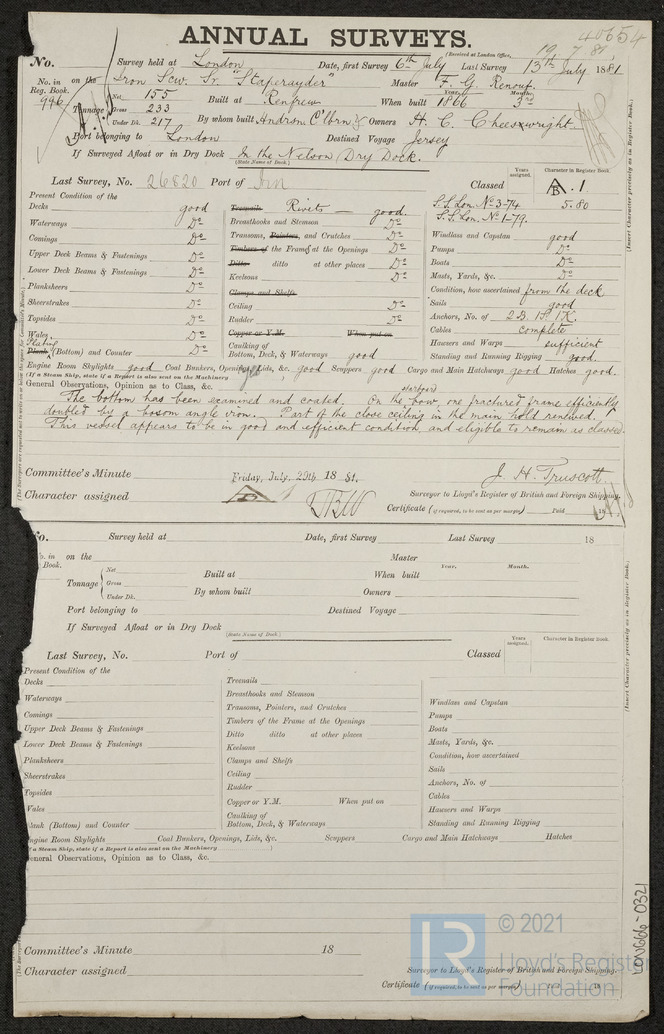 40654
ANNUAL SURVEYS.
(Received at London Office, 19.7.81
No. Survey held at London Date, first Survey 6th July Last Survey 13th July 1881
No. in Reg. Book. on the Iron Scw. Sr. "Staperayder" Master F. G. Renouf
996
Tonnage Net 155 Gross 233 Under Dk. 217 Built at Renfrew When built Year. 1866 Month. 3rd
By whom built Andrsn. C'lbrn & Owners H. C. Cheeswright.
Port belonging to London Destined Voyage Jersey
If Surveyed Afloat or in Dry Dock In the Nelson Dry Dock.
(State Name of Dock.)
Last Survey, No. 26820 Port of Classed Years assigned. Character in Register Book.
A.1
5.80
S.S. Lon. No. 3-74
S.S. Lon. No. 1-79.
Present Condition of the
Decks good
Waterways Do
Comings Do
Upper Deck Beams & Fastenings Do
Lower Deck Beams & Fastenings Do
Planksheers Do
Sheerstrakes Do
Topsides Do
Wales Do
Plating
Plank (Bottom) and Counter Do
Treenails Rivets good.
Breasthooks and Stemson Do
Transoms, Pointers, and Crutches Do
Timbers of the Frames at the Openings Do
Ditto ditto at other places Do
Keelsons Do
Clamps and Shelfs
Ceiling Do
Rudder Do
Copper or Y.M. When put on
Caulking of
Bottom, Deck, & Waterways good
Windlass and Capstan good
Pumps Do
Boats Do
Masts, Yards, &c. Do
Condition, how ascertained from the deck
Sails good
Anchors, No. of 2 B. 1 S. 1 K.
Cables complete
Hawsers and Warps sufficient
Standing and Running Rigging good.
Engine Room Skylights good Coal Bunkers, Openings, Lids, &c. good Scuppers good Cargo and Main Hatchways good Hatches good.
(If a Steam Ship, state if a Report is also sent on the Machinery yes
General Observations, Opinion as to Class, &c.
The bottom has been examined and coated. On the starboard bow, one fractured frame efficiently
doubled by a bosom angle iron. Part of the close ceiling in the main hold renewed.
This vessel appears to be in good and efficient condition, and eligible to remain as classed.
Committee's Minute Friday, July, 29th 1881.
J. H. Truscott.
Character assigned
Surveyor to Lloyd's Register of British and Foreign Shipping.
Certificate (if required, to be sent as per margin) Paid 18
(Insert Character precisely as in Register Book.)
No. Survey held at Date, first Survey Last Survey 18
on the Master
Book.
Tonnage Net Gross Under Dk. Built at When built Year. Month.
By whom built Owners
Port belonging to Destined Voyage
If Surveyed Afloat or in Dry Dock
(State Name of Dock.)
Last Survey, No. Port of Classed Years assigned. Character in Register Book.
Present Condition of the
Decks
Waterways
Comings
Upper Deck Beams & Fastenings
Lower Deck Beams & Fastenings
Planksheers
Sheerstrakes
Topsides
Wales
Plank (Bottom) and Counter
Treenails
Breasthooks and Stemson
Transoms, Pointers, and Crutches
Timbers of the Frame at the Openings
Ditto ditto at other places
Keelsons
Clamps and Shelfs
Ceiling
Rudder
Copper or Y.M. When put on
Caulking of
Bottom, Deck, & Waterways
Windlass and Capstan
Pumps
Boats
Masts, Yards, &c.
Condition, how ascertained
Sails
Anchors, No. of
Cables
Hawsers and Warps
Standing and Running Rigging
Engine Room Skylights Coal Bunkers, Openings, Lids, &c. Scuppers Cargo and Main Hatchways Hatches
(If a Steam Ship, state if a Report is also sent on the Machinery
General Observations, Opinion as to Class, &c.
Committee's Minute 18
Character assigned
Surveyor to Lloyd's Register of British and Foreign Shipping.
Certificate (if required, to be sent as per margin) Paid 18
(Insert Character precisely as in Register Book.)
LON666-0321
LR
© 2021
Lloyd's Register
Foundation